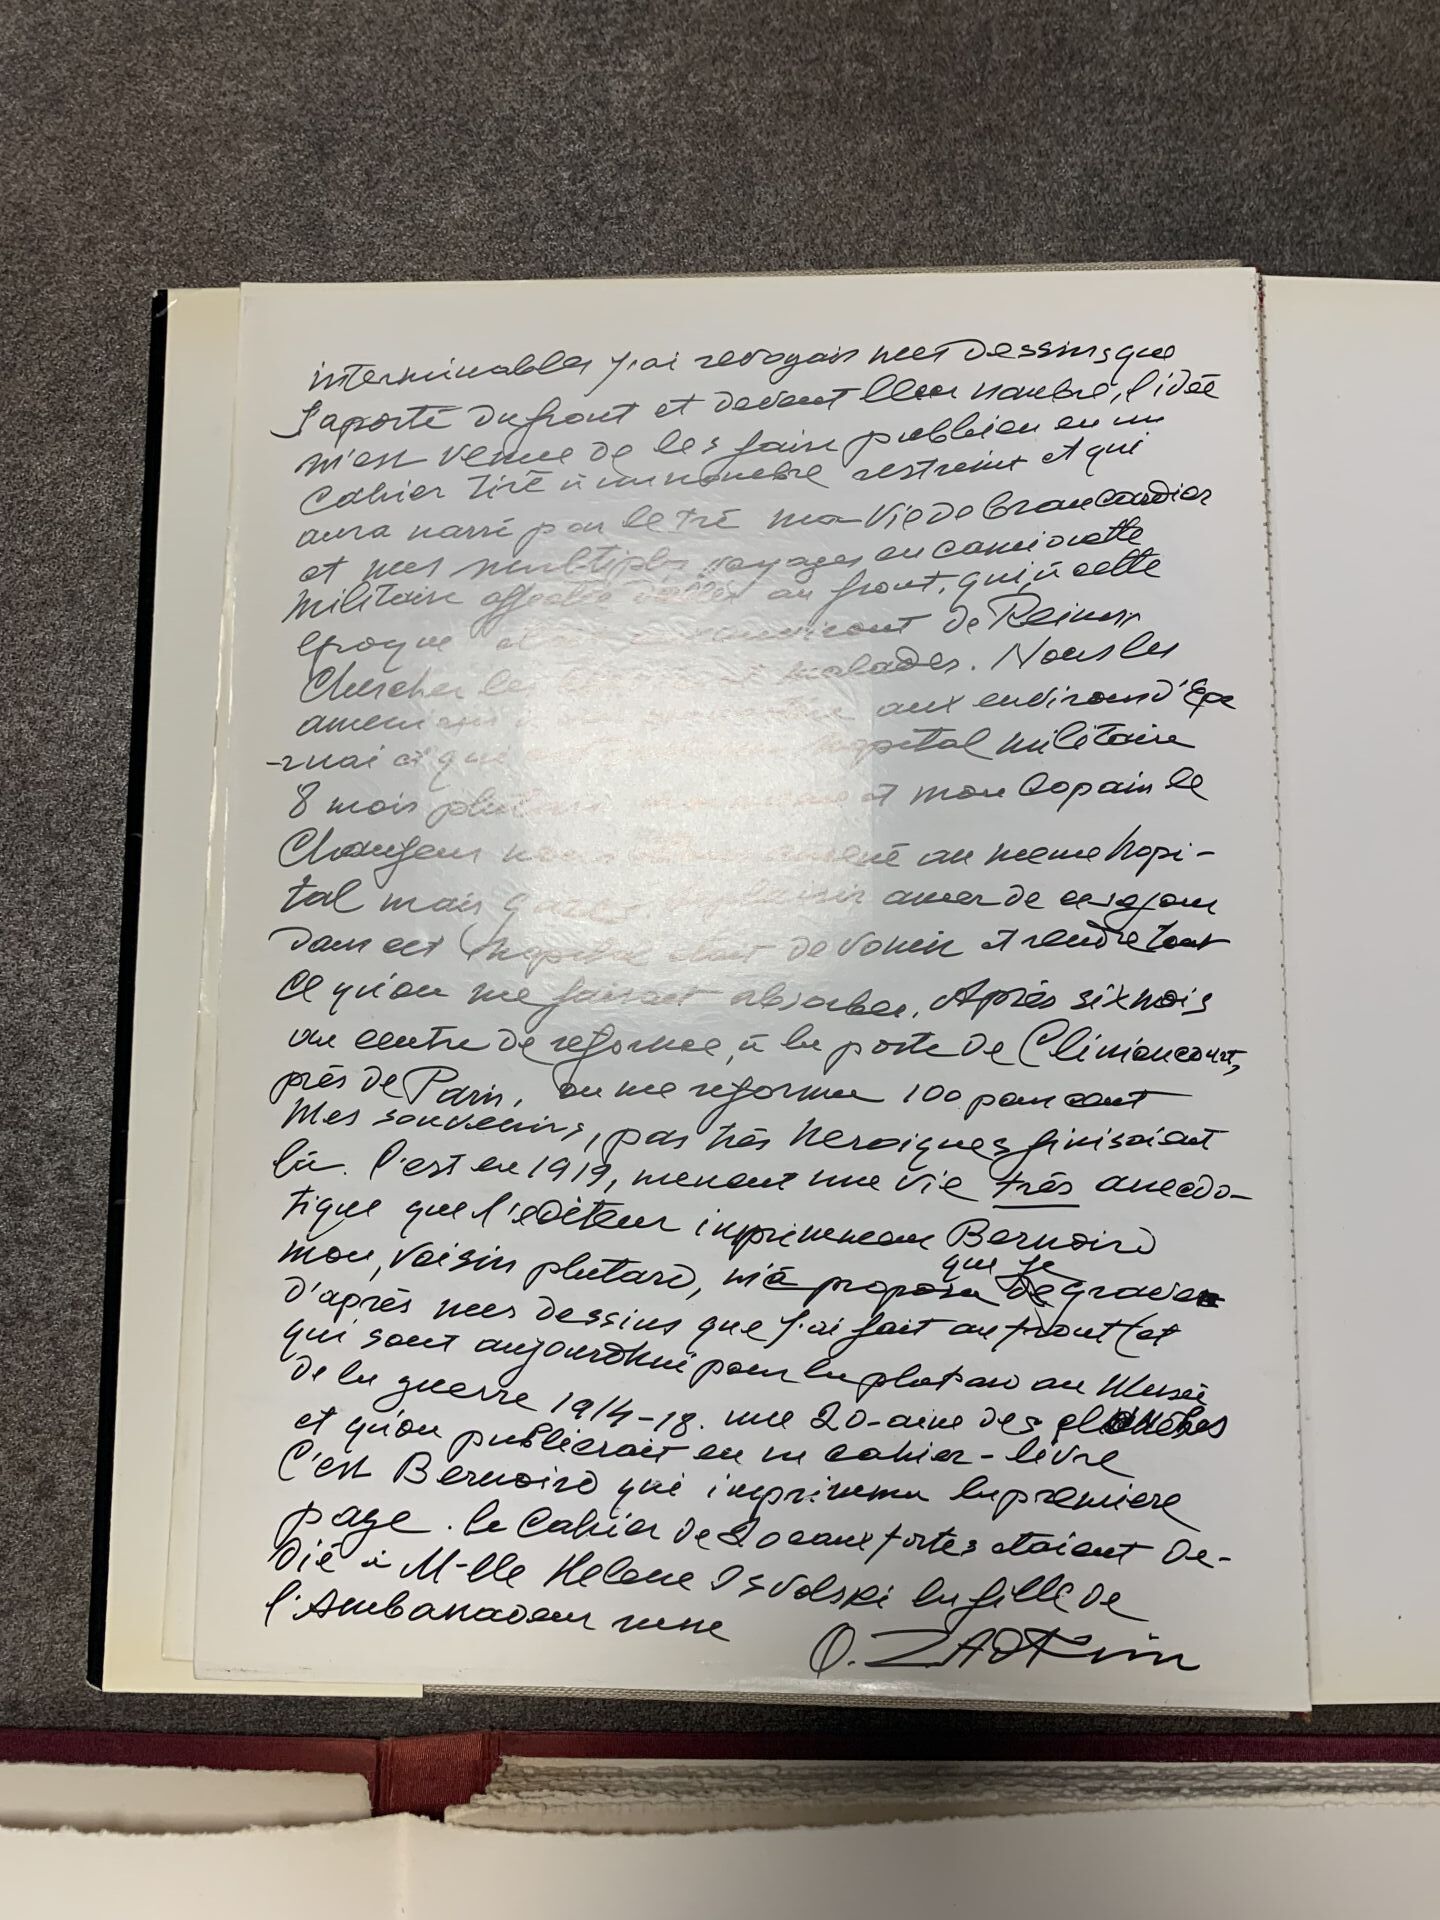 interminables j'ai revoyais mes dessins que
j'aporté du front et devant leur nombre, l'idée
m'est venue de les faire publier en un
Cahier tiré à un nombre restreint et qui
aura narré par le tré ma vie de brancardier
et mes multiples voyages en camionette
militaire affectée d'aller au front, qui, à cette
époque était aux environt de Reims,
Chercher les et malades. Nous les
amenions à aux environs d'Epe
-rnai et qui hopital militaire
8 mois plutard et mon copain le
Chaufeur nous amené au meme hopi-
tal mais gazés. Le plaisir amer de ce sejour
dans cet hopital était de vomir et rendre tout
ce qu'on me faisait absorber. Après six mois
au centre de reforme, à la porte de Clinioncourt,
près de Paris, on me reforma 100 pour cent
Mes souvenirs, pas très heroiques finisaient
là. C'est en 1919, menant une vie très anecdo-
tique que l'editeur imprimeur Bernoird
mon, voisin plutard, m'a proposa que je grave
d'après mes dessins que j'ai fait au front (et
qui sont aujourdhui pour la plupart au Musée
de la guerre 1914-18. une 20-aine des planches
et qu'on publierait en un cahier-livre
C'est Bernoird qui imprima la premiere
page. Le Cahier de 20 eaux fortes etaient de-
dié à M-lle Helene Isvolski la fille de
l'Ambassadeur russe
O. ZADKinn